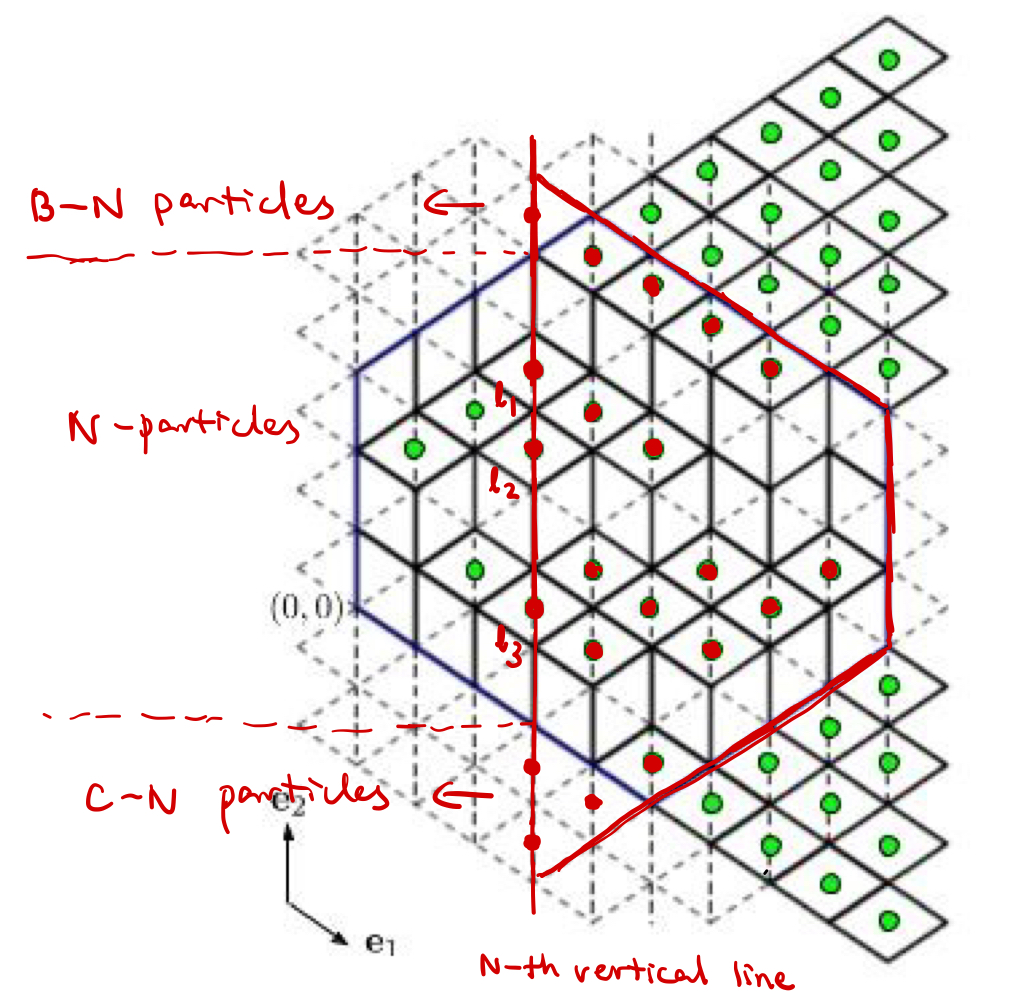 B-N particles
l1
N-particles
l2
(0,0)
l3
C-N particles
e2
e1
N-th vertical line